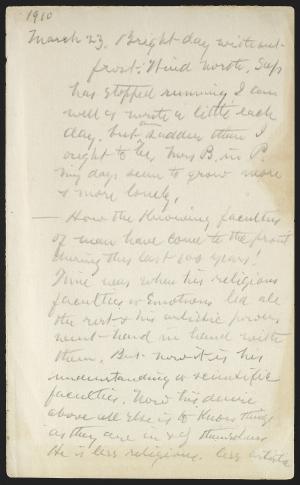 1910
March 23. Bright day without
frost: Wind north. Sap
has stopped running I am
well & write a little each
day, but sadder than I
ought to be, Mrs B. in P.
my days seem to grow more
& more lonely.
— How the Knowing faculties
of man have come to the front
during this last 100 years!
Time was when his religious
faculties & Emotions led all
the rest & his artistic powers
went hand in hand with
them. But now it is his
understanding or scientific
faculties. Now his desire
above all else is to Know things
as they are in & of themselves
He is less religious, less artistic